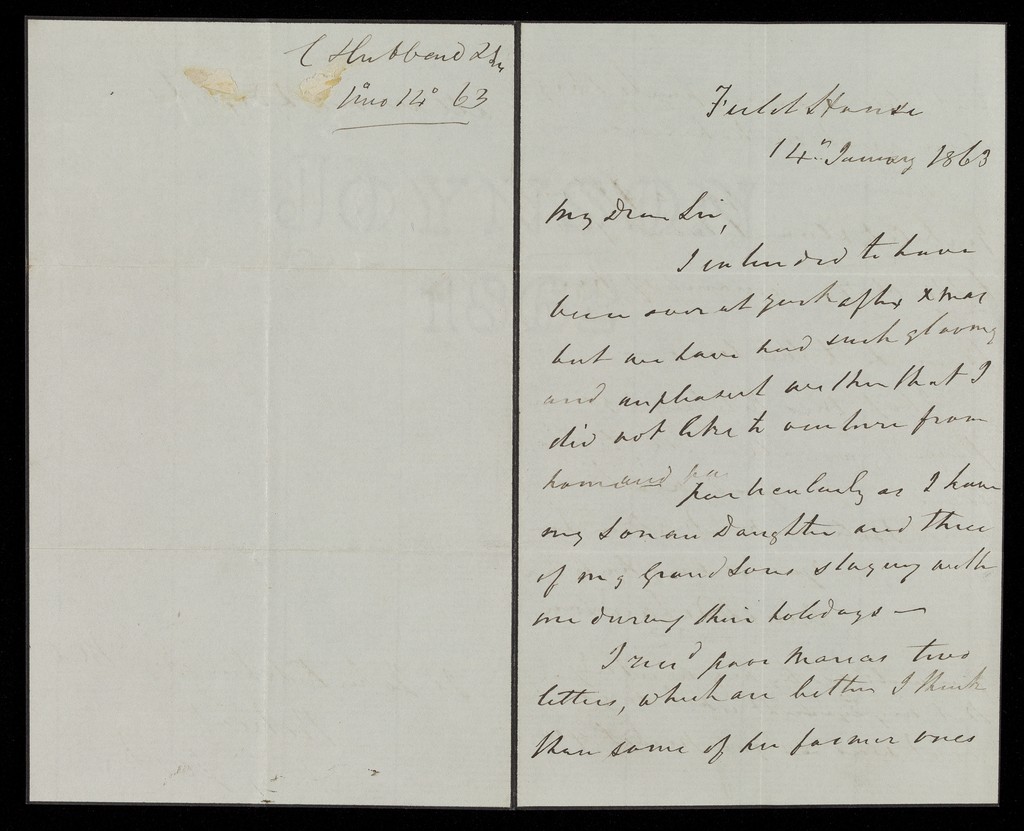 C Hubbard
14° 63
Field House
14th January 1863
My Dear Sir,
I intended to have
been over at York after Xmas
but we have had such gloomy
and unpleasant weather that I
did not like to venture from
home and pa particularly as I have
my Son an Daughter and three
of my Grand Sons staying with
me during their holidays —
I recd poor Marias two
letters, which are better I think
than some of her former ones